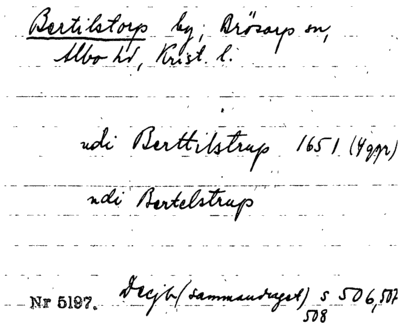 Bertilstorp by, Brösarp sn,
Albo hd, Krist. l.
udi Berttilstrup 1651 (4 ggr)
udi Bertelstrup
Nr 5197. Decjb (sammandraget) s 506, 507
508